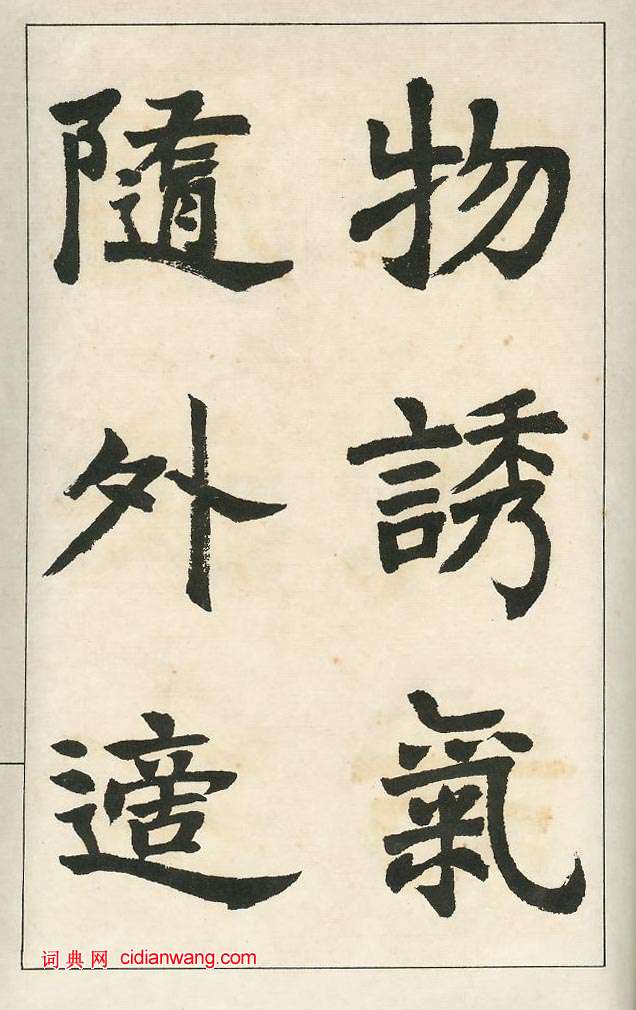 物誘氣
隨外適
词典网 cidianwang.com